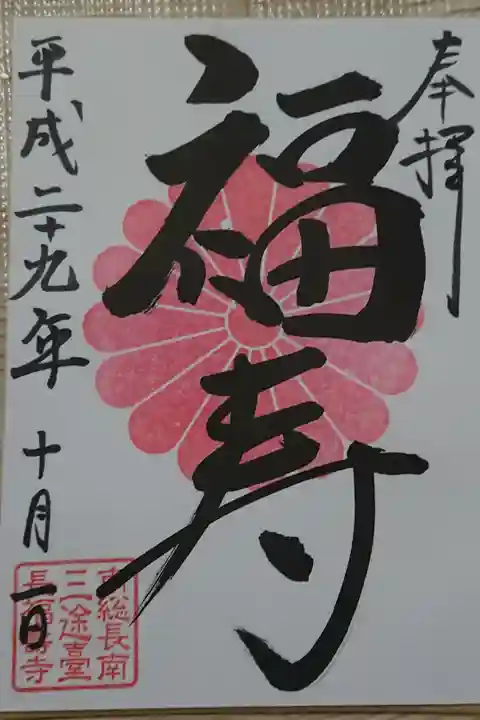 奉拝
福寿
平成二十九年 十月 一日
南総長南
三途臺
長福寿寺